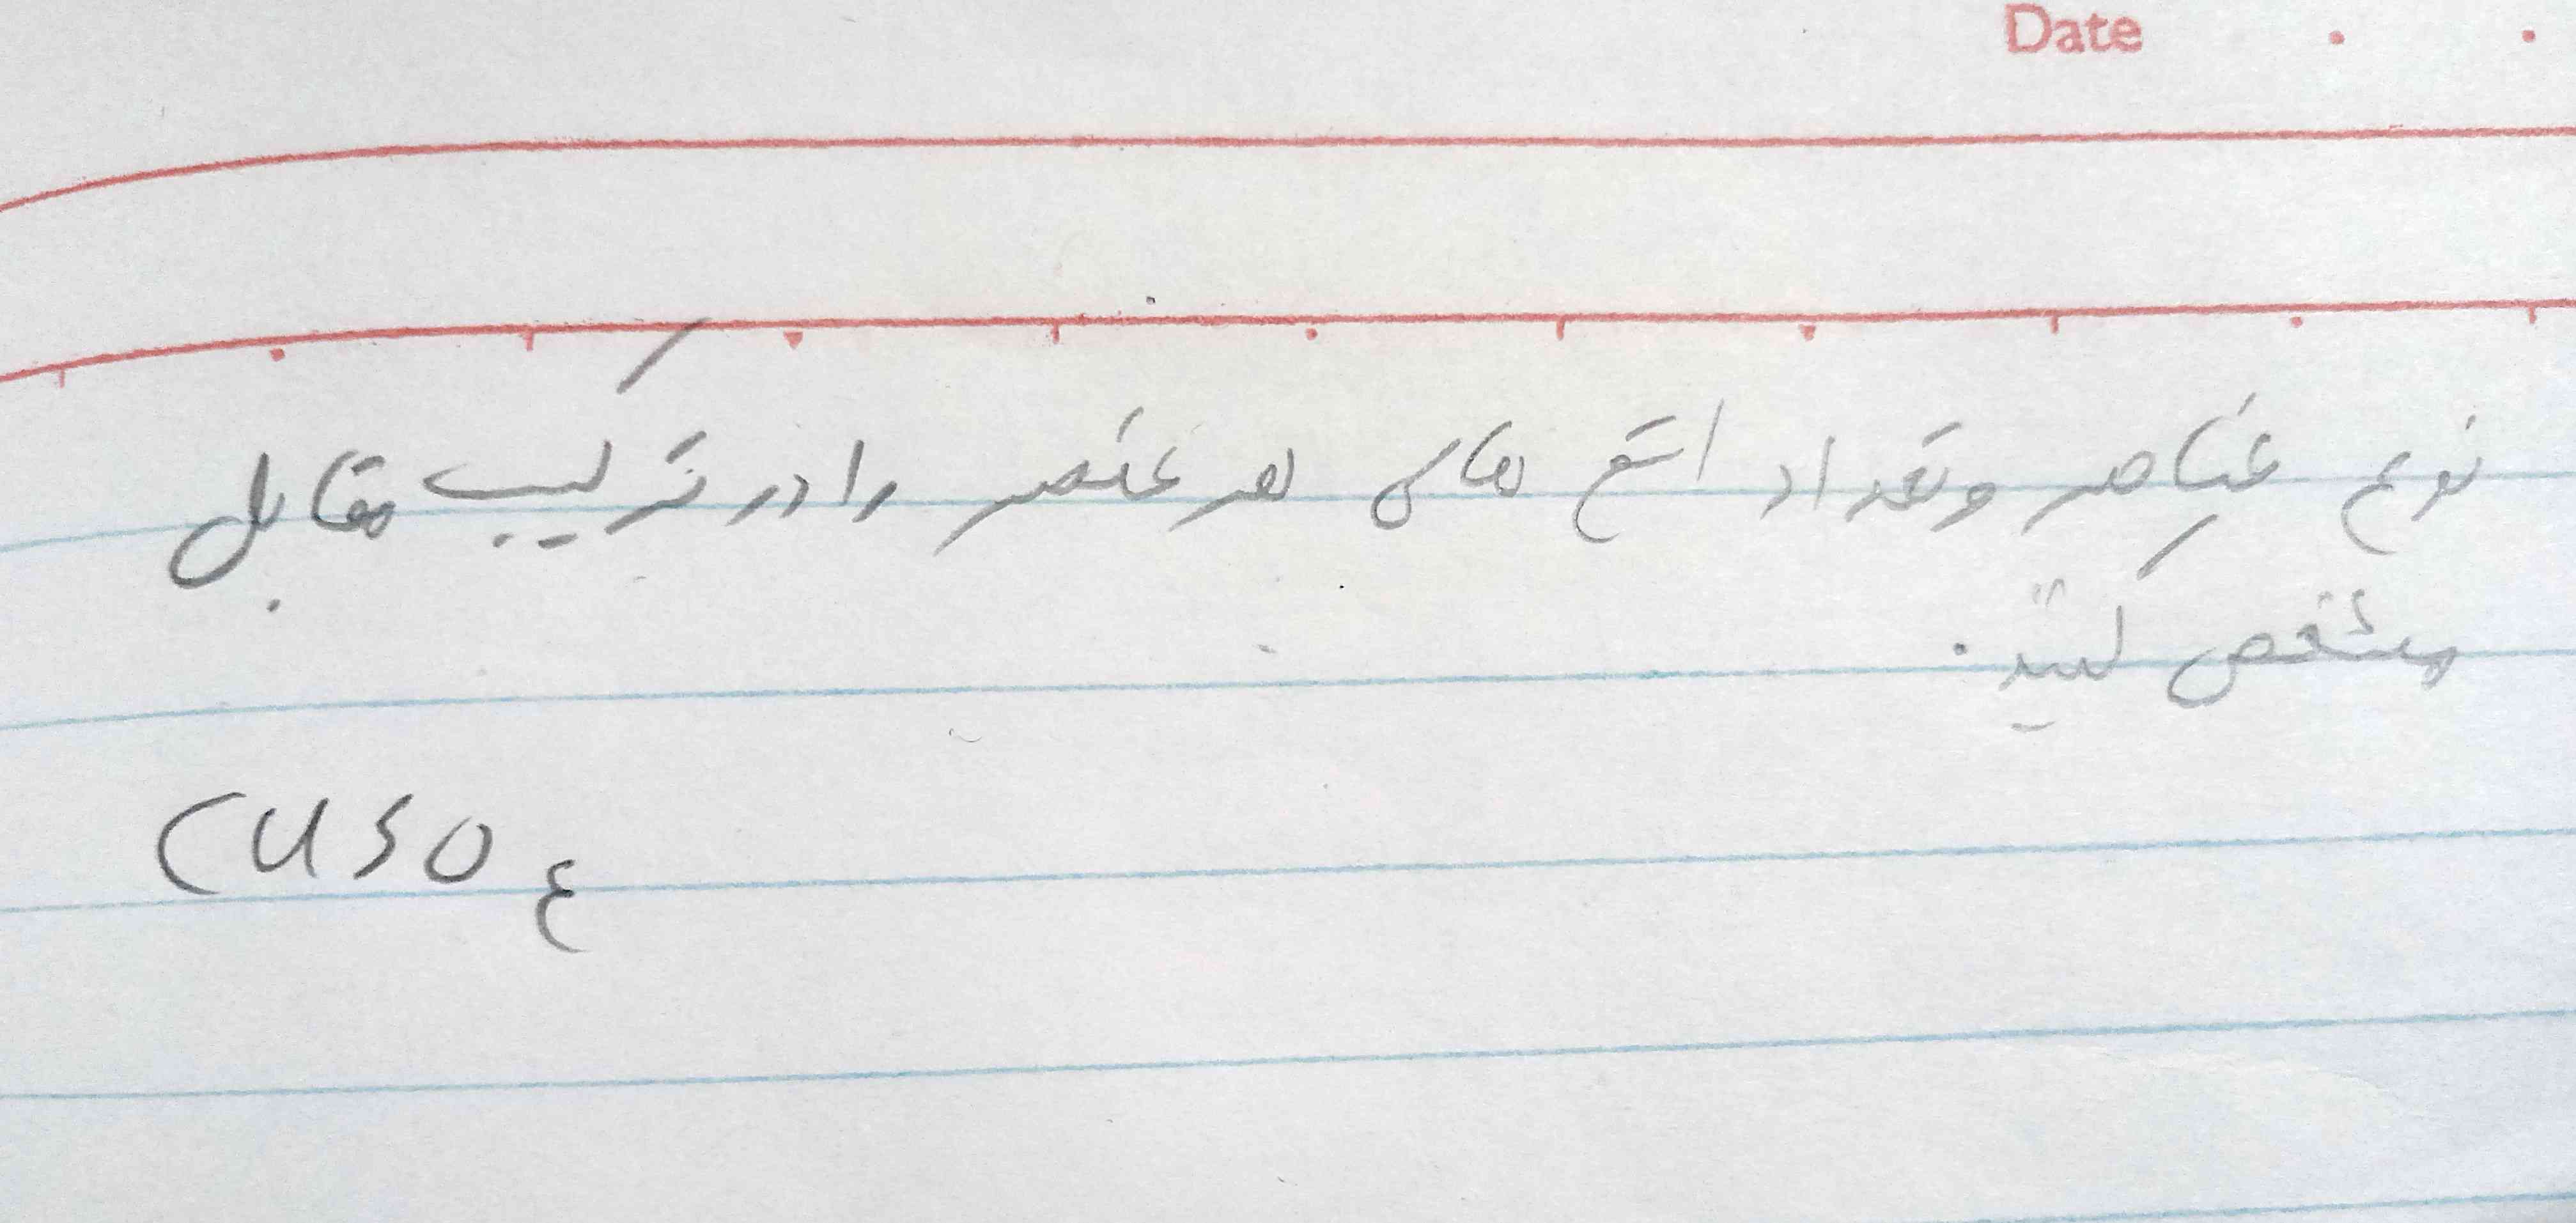 Date
نوع عناصر و تعداد اتم های هر عنصر را در ترکیب مقابل
مشخص کنید.
CuSO۴